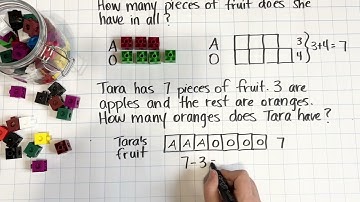 How many pieces of fruit does she
have in all?
A
O
A
O
3
4
3+4=7
Tara has 7 pieces of fruit. 3 are
apples and the rest are oranges.
How many oranges does Tara have?
Tara's
fruit
A A A O O O O 7
7-3=